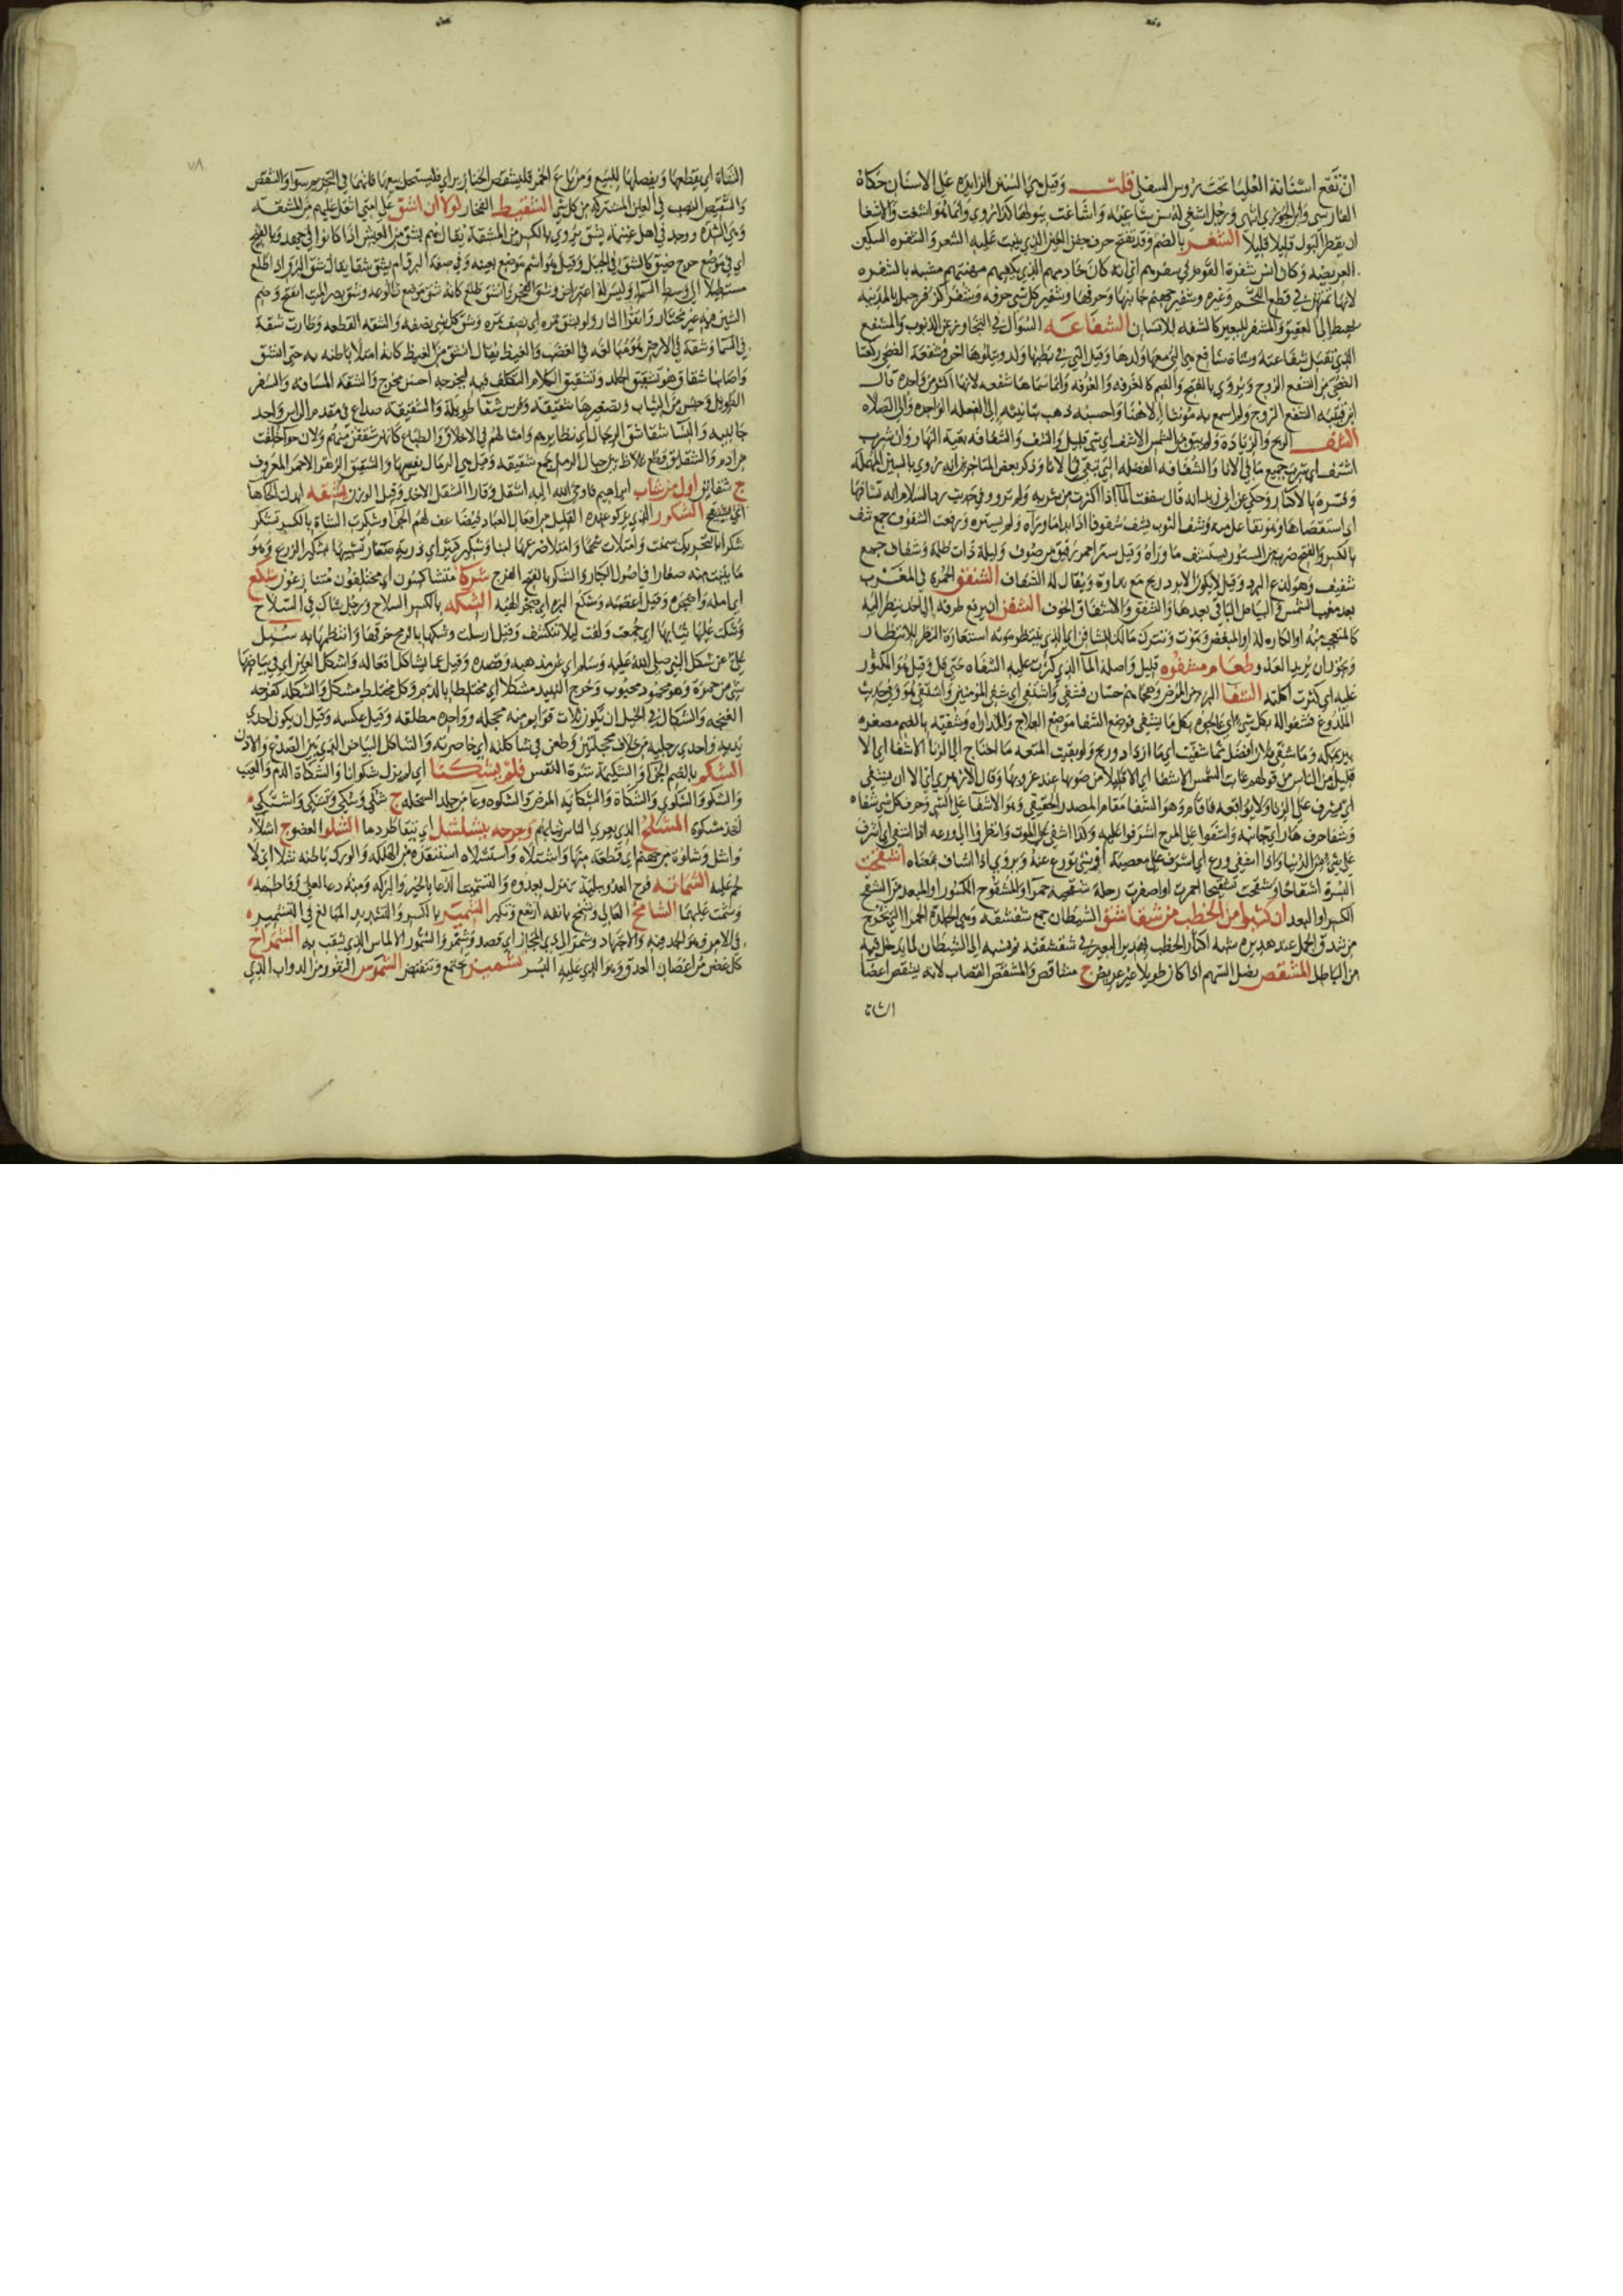 ان تقع اسنانه العليا تحت روس السفلى قلت وقيل هي السن الزايده على الاسنان حكاه
الفارسي وابن الجوزي انتهى ورجل اشغى له سن شاغيه واشاغت ببولها كذا روي وانما هو اشغت والاشغا
ان يقطر البول قليلا قليلا الشفر بالضم وقد يفتح حرف جفن العين الذي ينبت عليه الشعر والشفره السكين
العريضه وكان انس شفرة القوم في سفرهم اي انه كان خادمهم الذي يكفيهم مهنتهم مشبه بالشفره
لانها تمتهن في قطع اللحم وغيره وشفير جهنم جانبها وحرفها وشفير كل شي حرفه وشفر كزفر جبل بالمدينه
يهبط الى العقيق والمشفر للبعير كالشفه للانسان الشفاعه السوال في التجاوز عن الذنوب والمشفع
الذي تقبل شفاعته وشاة شافع هي التي معها ولدها وقيل التي في بطنها ولد ويتلوها اخر وشفعة الضحى ركعتا
الضحى من الشفع الزوج ويروى بالفتح والضم كالغرفه والغرفه وانما سماها شفعه لانها اكثر من واحده قال
ابن قتيبه الشفع الزوج ولم اسمع به مونثا الا ههنا واحسبه ذهب بتانيثه الى الفعله الواحده والى الصلاه
الشف الربح والزيادة ولم يبق من الشمس الا شف اي شي قليل والشف والشفافه بقية النهار وان شرب
اشتف اي شرب جميع ما في الانا والشفافه الفضله التي تبقى في الانا وذكر بعض المتاخرين انه روي بالسين المهملة
وفسره بالاكثار وحكي عن ابي زيد انه قال سففت الما اذا اكثرت من شربه ولم ترو وفي حديث رد السلام انه تشافها
اي استقصاها وهو تفاعل منه وشف الثوب يشف شفوفا اذا بدا ما وراه ولم يستره ورفعت الشفوف جمع شف
بالكسر والفتح ضرب من الستور يستشف ما وراه وقيل ستر احمر رقيق من صوف وليلة ذات ظلمة وشفاف جمع
شفيف وهو لذع البرد وقيل لا يكون الا برد ريح مع نداوة ويقال له الشفان الشفق الحمرة في المغرب
بعد مغيب الشمس والبياض الباقي بعدها والشفق والاشفاق الخوف الشفن ان يرفع طرفه الى احد ينظر اليه
كالمتعجب منه او الكاره له او المبغض وتموت وتترك مالك للشافن اي الذي ينتظر موته استعارة النظر للانتظار
ويجوز ان يريد العدو وطعام مشفوه قليل واصله الما الذي كثرت عليه الشفاه حتى قل وقيل هو المكثور
عليه اي كثرت اكلته الشفا البر من المرض وهجاهم حسان فشفى واشتفى اي شفى المومنين واشتفى هو وفي حديث
الملدوغ فشفوا له بكل شي اي عالجوه بكل ما يشفى فوضع الشفا موضع العلاج والمداواه وشفيه بالضم مصغره
بير بمكه وما شفي فلان افضل مما شفيت اي ما ازداد وربح ولو بقيت المتعه ما احتاج الى الزنا الا شفا اي الا
قليل من الناس من قولهم غابت الشمس الا شفا اي الا قليلا من ضوها عند غروبها وقال الازهري اي الا ان يشفي
اي يشرف على الزنا ولا يواقعه فاقام وهو الشفا مقام المصدر الحقيقي وهو الاشفا على الشي وحرف كل شي شفاه
وشفا جرف هار اي جانبه واشفوا على المرج اشرفوا عليه وكذا اشفى على الموت وانظروا الى ورعه اذا اشفى اي اشرف
على شي من الدنيا واذا اشفى ورع اي اشرف على معصية اوشي تورع عنه ويروى اذا اشاف بمعناه اشقحت
البسرة اشقاحا وشقحت تشقيحا احمرت او اصفرت وحلة شقحيه حمرا والمشقوح المكسور او المبعد من الشقح
الكسر او البعد ان كثيرا من الخطب من شقاشق الشيطان جمع شقشقه وهي الجلدة الحمرا التي تخرج
من شدق الجمل عند هديره شبه اكثار الخطب بهدير البعير في شقشقته ونسبه الى الشيطان لما يدخل فيه
من الباطل المشقص نصل السهم اذا كان طويلا غير عريض ج مشاقص والمشقص القصاب لانه يشقص اعضا
الشاة
الشاة اي يقطعها ويفصلها للبيع ومن باع الخمر فليشقص الخنازير اي فليستحل بيعها فانهما في التحريم سوا والشقص
والشقيص النصيب في العين المشتركه من كل شي الشقيط الفخار لولا ان اشق على امتي اثقل عليهم من المشقه
وهي الشده ووجد في اهل غنيمة بشق يروي بالكسر من المشقة يقال هم بشق من العيش اذا كانوا في جهد وبالفتح
اي في موضع حرج ضيق كالشق في الجبل وقيل هو اسم موضع بعينه وفي صفة البرق ام يشق شقا يقال شق البرق اذا طلع
مستطيلا الى وسط السما وليس له اعتراض وشق الفجر وانشق طلع كانه شق موضع طلوعه وشق بصر الميت انفتح وضم
الشين فيه غير مختار واتقوا النار ولو بشق تمره اي نصف تمره وشق كل شي نصفه والشقه القطعه وطارت شقة
في السما وشقة في الارض هو مبالغة في الغضب والغيظ يقال انشق من الغيظ كانه امتلا باطنه به حتى انشق
واصابنا شقاق وهو تشقيق الجلد وتشقيق الكلام التكلف فيه ليخرجه احسن مخرج والشقه المسافه والسفر
الطويل وجنس من الثياب وتصغيرها شقيقه وفرس شقا طويلة والشقيقه صداع في مقدم الراس واحد
جانبيه والنسا شقايق الرجال اي نظايرهم وامثالهم في الاخلاق والطباع كانهن شققن منهم ولان حوا خلقت
من ادم والشقايق قطع غلاظ بين حبال الرمل جمع شقيقه وقيل هي الرمال نفسها والشقيق الزهر الاحمر المعروف
ج شقايق اول من شاب ابراهيم فاوحى الله اليه اشقل وقارا الشقل الاخذ وقيل الوزن يشقه ابدلت الحا ها
اي يشقح الشكور الذي يزكو عنده القليل من افعال العباد فيضاعف لهم الجزا وشكرت الشاة بالكسر تشكر
شكرا بالتحريك سمنت وامتلات شحما وامتلا ضرعها لبنا وشكير كثير اي ذرية صغار تشبيها بشكير الزرع وهو
ما ينبت منه صغارا في اصول الكبار والشكر بالفتح الفرج شركا متشاكسون اي مختلفون متنازعون شكع
اي امله واضجره وقيل اغضبه وشكع البرة اي ضجر لهيئه الشكه بالكسر السلاح ورجل شاك في السلاح
وشكت عليها ثيابها اي جمعت ولفت ليلا تنكشف وقيل ارسلت وشكها بالرمح خرقها وانتظمها به سيل
علي عن شكل النبي صلى الله عليه وسلم اي عن مذهبه وقصده وقيل عما يشاكل افعاله واشكل العين اي في بياضها
شي من حمرة وهو محمود محبوب وخرج النبيذ مشكلا اي مختلطا بالدم وكل مختلط مشكل والشكله كفرحه
الغنجه والشكال في الخيل ان يكون ثلاث قوايم منه محجله وواحده مطلقه وقيل عكسه وقيل ان يكون احدى
يديه واحدى رجليه من خلاف محجلتين وطعن في شاكلته اي خاصرته والشاكل البياض الذي بين الصدغ والاذن
الشكم بالضم الجزا والشكيمة شدة النفس فلم يشكنا اي لم يزل شكوانا والشكاة الذم والعيب
والشكو والشكوى والشكاة والشكايه المرض والشكوه وعا من جلد السخله ج شكي وشكى وتشكى واشتكى
اتخذ شكوه المشلح الذي يعري الناس ثيابهم وجرحه يتشلشل اي يتقاطر دما الشلو العضو ج اشلاء
واشل وشلوة من جهنم اي قطعة منها واشتلاه واستشلاه استنقذه من الهلكه والورك باطنه شلا اي لا
لحم عليه الشماته فرح العدو ببلية تنزل بعدوه والتشميت الدعا بالخير والبركه ومنه دعا لعلي وفاطمه
وشمت عليهما الشامخ العالي وشمخ بانفه ارتفع وتكبر الشمير بالكسر والتشديد المبالغ في التشمير
في الامر وهو الجد فيه والاجتهاد وشمر الى ذي المجاز اي قصد وشمر والشمور الالماس الذي يثقب به الشمراخ
كل غصن من اغصان العذق وهو الذي عليه البسر تشمئز تجتمع وتنقبض الشموس النفور من الدواب الذي